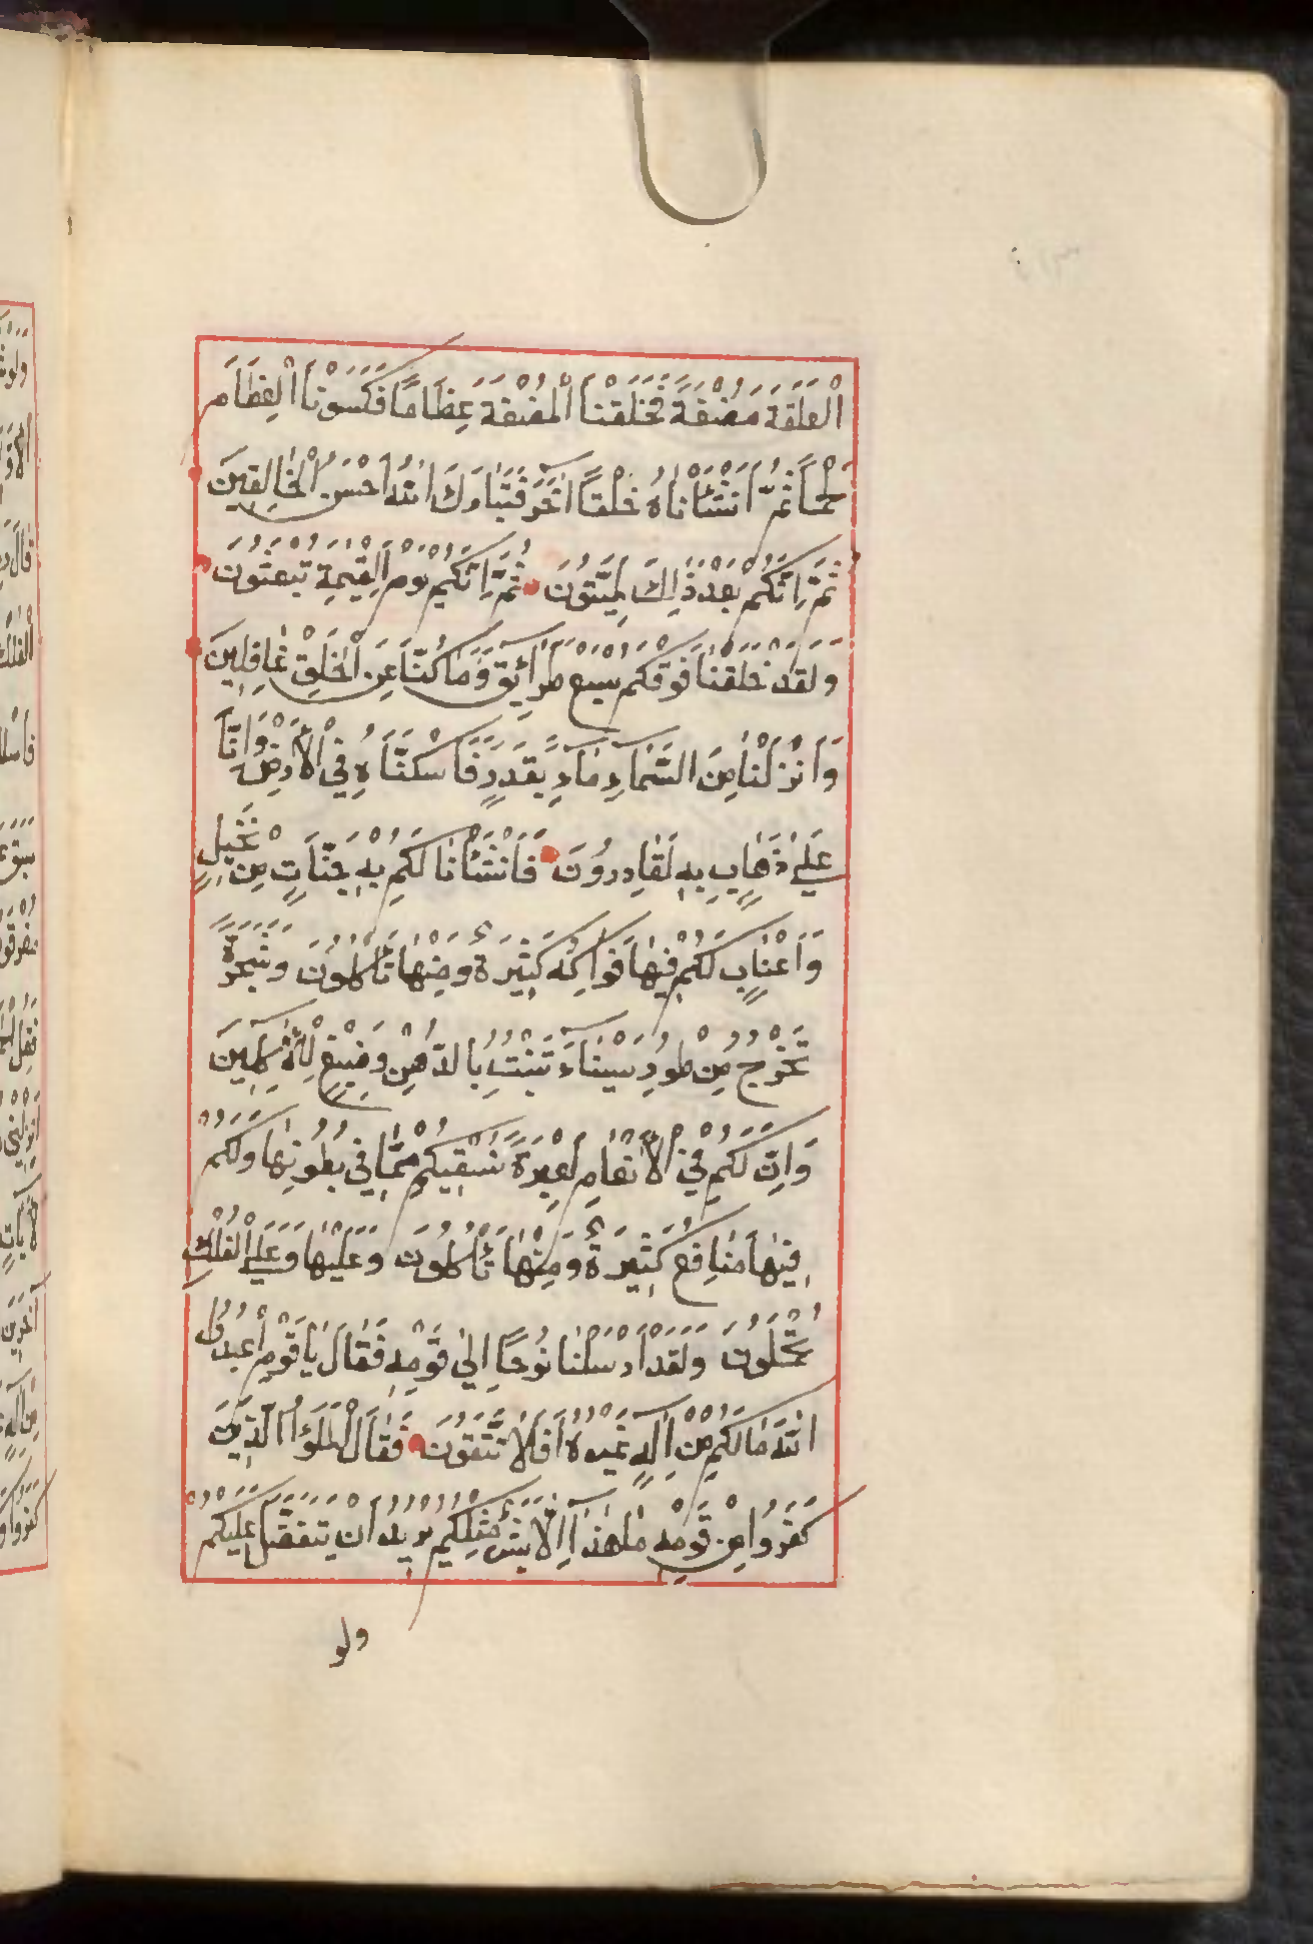 الْعَلَقَةَ مُضْغَةً فَخَلَقْنَا الْمُضْغَةَ عِظَامًا فَكَسَوْنَا الْعِظَامَ
لَحْمًا ثُمَّ اَنْشَأْنَاهُ خَلْقًا اٰخَرَ فَتَبَارَكَ اللّٰهُ اَحْسَنُ الْخَالِقِينَ
ثُمَّ اِنَّكُمْ بَعْدَ ذٰلِكَ لَمَيِّتُونَ ثُمَّ اِنَّكُمْ يَوْمَ الْقِيٰمَةِ تُبْعَثُونَ
وَلَقَدْ خَلَقْنَا فَوْقَكُمْ سَبْعَ طَرَائِقَ وَمَا كُنَّا عَنِ الْخَلْقِ غَافِلِينَ
وَاَنْزَلْنَا مِنَ السَّمَاءِ مَاءً بِقَدَرٍ فَاَسْكَنَّاهُ فِي الْاَرْضِ وَاِنَّا
عَلٰي ذَهَابٍ بِهِ لَقَادِرُونَ فَاَنْشَأْنَا لَكُمْ بِهِ جَنَّاتٍ مِنْ نَخِيلٍ
وَاَعْنَابٍ لَكُمْ فِيهَا فَوَاكِهُ كَثِيرَةٌ وَمِنْهَا تَأْكُلُونَ وَشَجَرَةً
تَخْرُجُ مِنْ طُورِ سَيْنَاءَ تَنْبُتُ بِالدُّهْنِ وَصِبْغٍ لِلْاٰكِلِينَ
وَاِنَّ لَكُمْ فِي الْاَنْعَامِ لَعِبْرَةً نُسْقِيكُمْ مِمَّا فِي بُطُونِهَا وَلَكُمْ
فِيهَا مَنَافِعُ كَثِيرَةٌ وَمِنْهَا تَأْكُلُونَ وَعَلَيْهَا وَعَلَي الْفُلْكِ
تُحْمَلُونَ وَلَقَدْ اَرْسَلْنَا نُوحًا اِلٰي قَوْمِهِ فَقَالَ يَا قَوْمِ اعْبُدُوا
اللّٰهَ مَا لَكُمْ مِنْ اِلٰهٍ غَيْرُهُ اَفَلَا تَتَّقُونَ فَقَالَ الْمَلَؤُا الَّذِينَ
كَفَرُوا مِنْ قَوْمِهِ مَا هٰذَا اِلَّا بَشَرٌ مِثْلُكُمْ يُرِيدُ اَنْ يَتَفَضَّلَ عَلَيْكُمْ
ولو